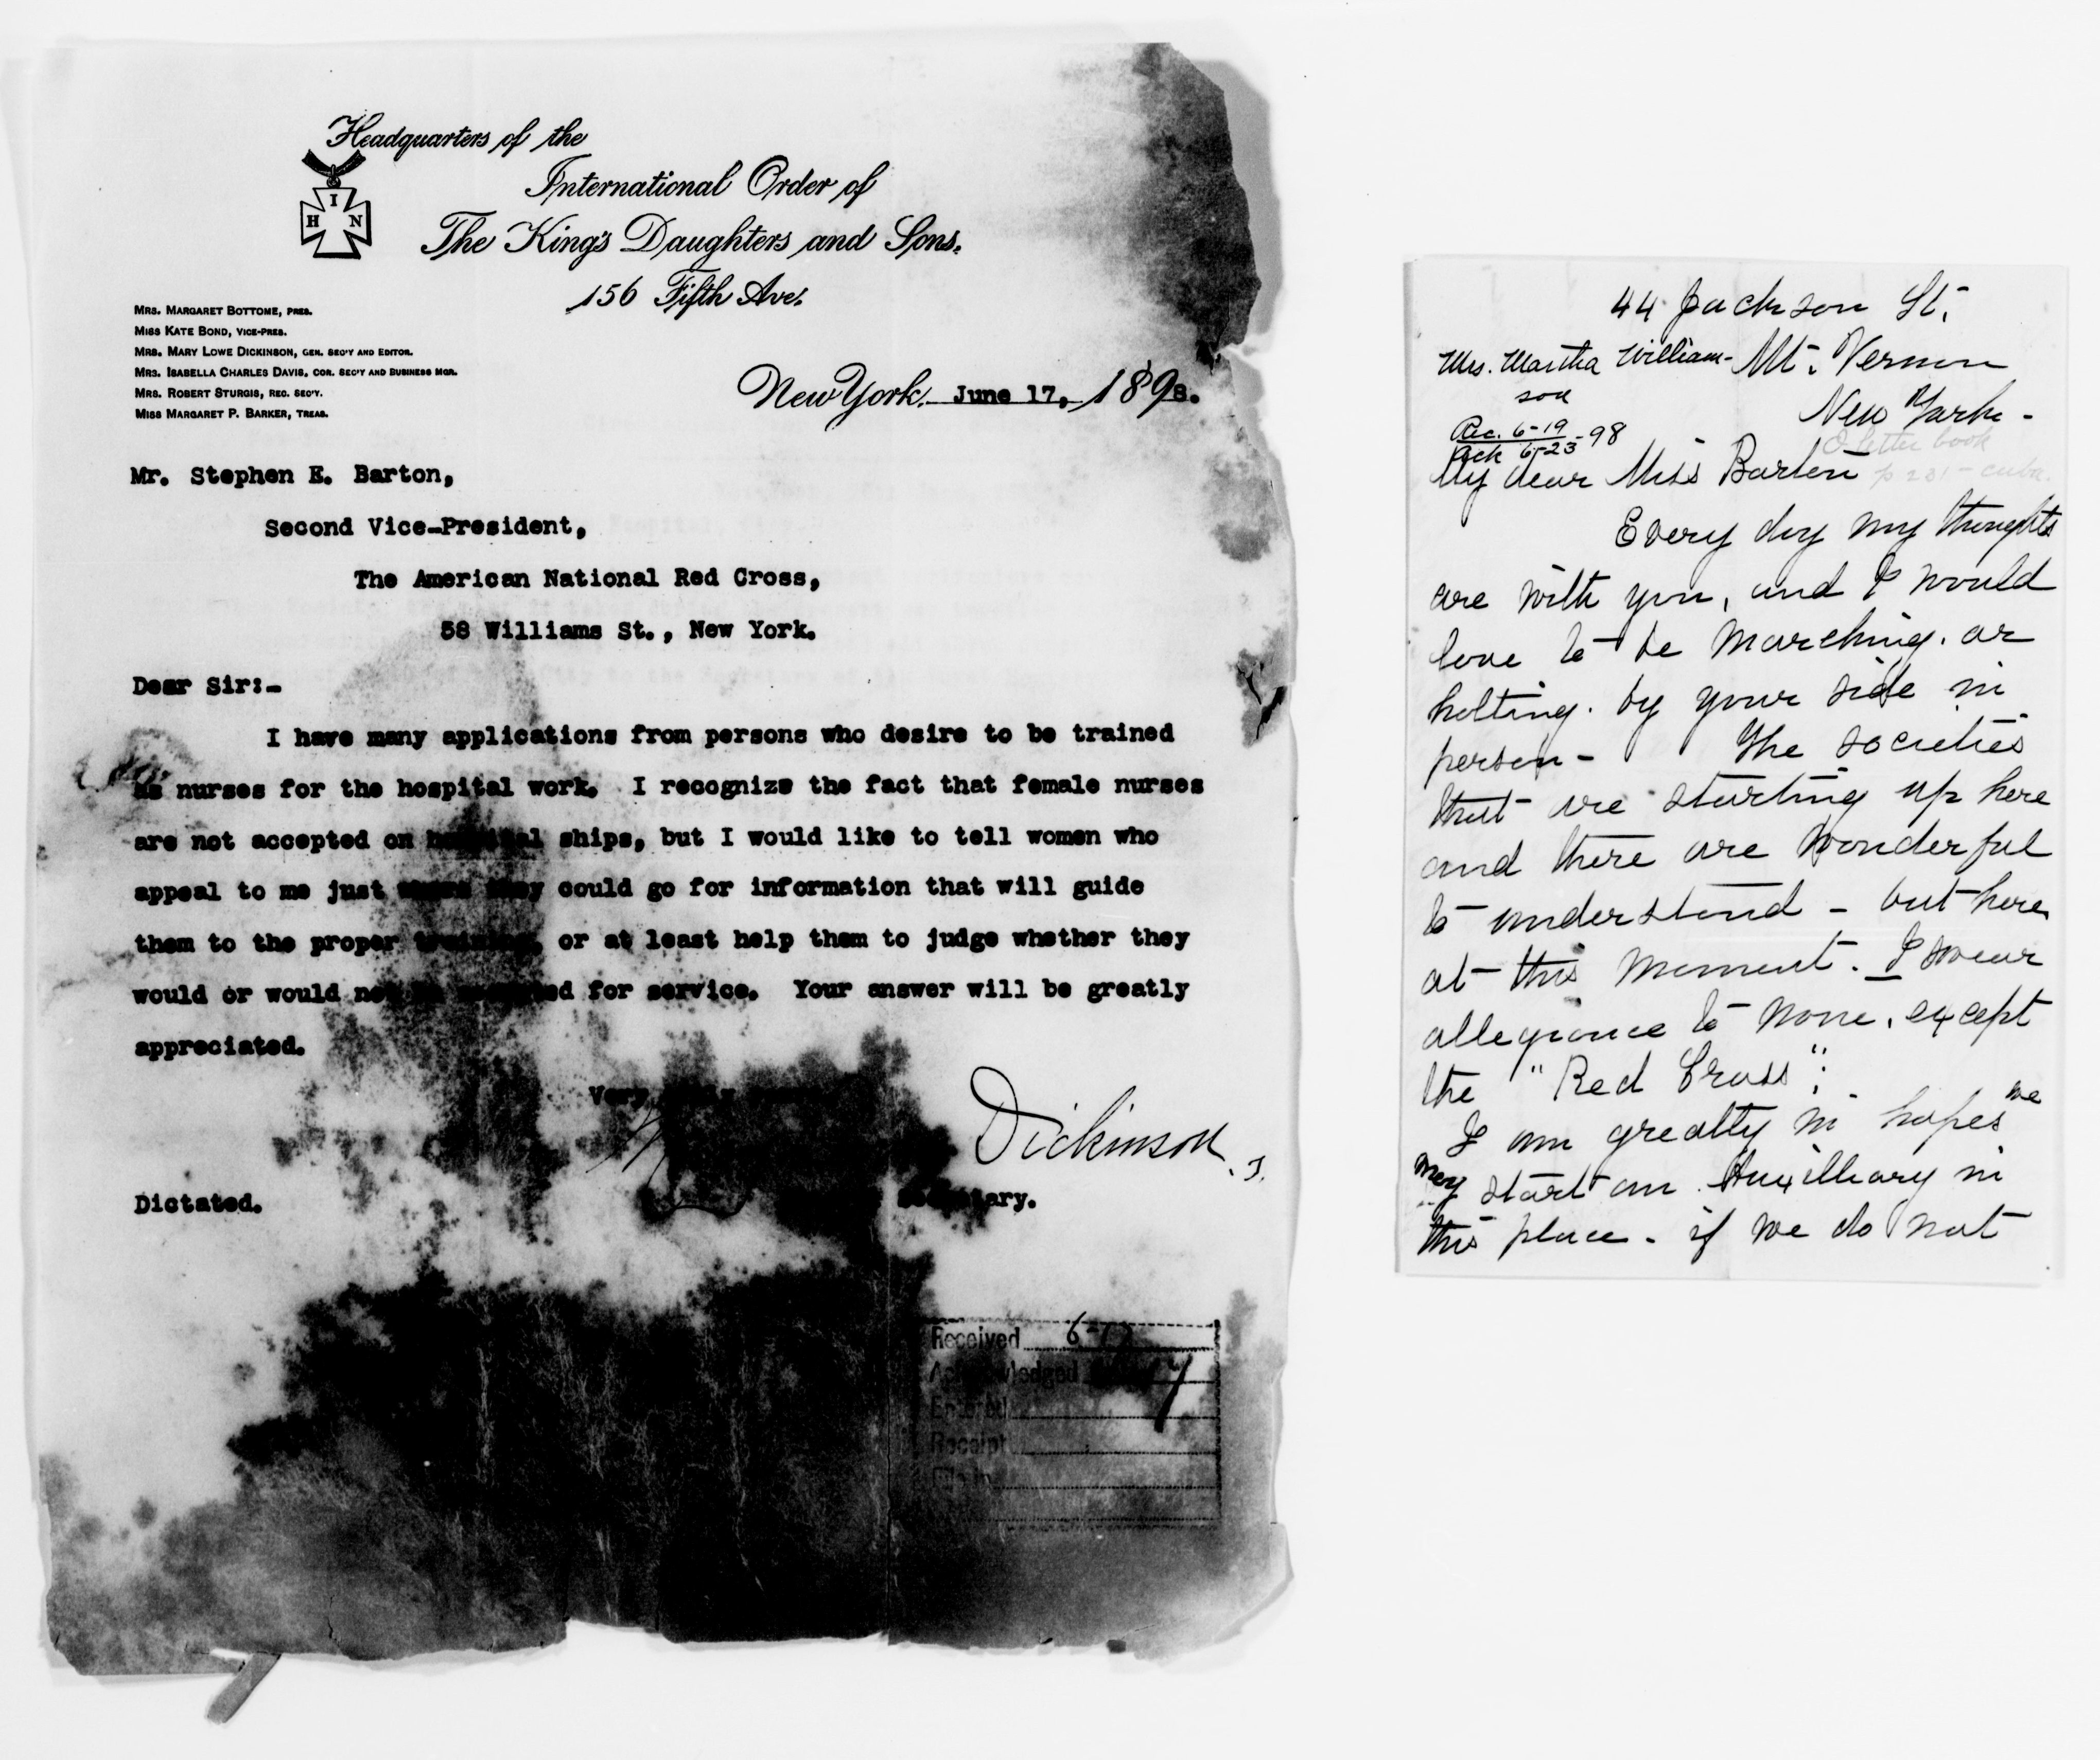 Headquarters of the
International Order of
The King's Daughters and Sons,
156 Fifth Ave.
I
H N
MRS. MARGARET BOTTOME, PRES.
MISS KATE BOND, VICE-PRES.
MRS. MARY LOWE DICKINSON, GEN. SEC'Y AND EDITOR.
MRS. ISABELLA CHARLES DAVIS, COR. SEC'Y AND BUSINESS MGR.
MRS. ROBERT STURGIS, REC. SEC'Y.
MISS MARGARET P. BARKER, TREAS.
New York, June 17, 1898.
Mr. Stephen E. Barton,
Second Vice-President,
The American National Red Cross,
58 Williams St., New York.
Dear Sir:-
I have many applications from persons who desire to be trained
as nurses for the hospital work. I recognize the fact that female nurses
are not accepted on hospital ships, but I would like to tell women who
appeal to me just where they could go for information that will guide
them to the proper training, or at least help them to judge whether they
would or would not be accepted for service. Your answer will be greatly
appreciated.
Very
Dickinson
Dictated. Secretary.
Received 6-17
Acknowledged
Entered
Receipt
File in
44 Jackson St.
Mrs. Martha William- Mt. Vernon
son
New York -
Rec. 6-19
Ack 6-23-98
letter book
My dear Miss Barton
Every day my thoughts
are with you, and I would
love to be marching. or
halting. by your side in
person - The societies
that are starting up here
and there are wonderful
to understand - but here
at this moment. I swear
allegiance to none. except
the "Red Cross":
I am greatly in hopes we
may start an Auxilliary in
this place - if we do not